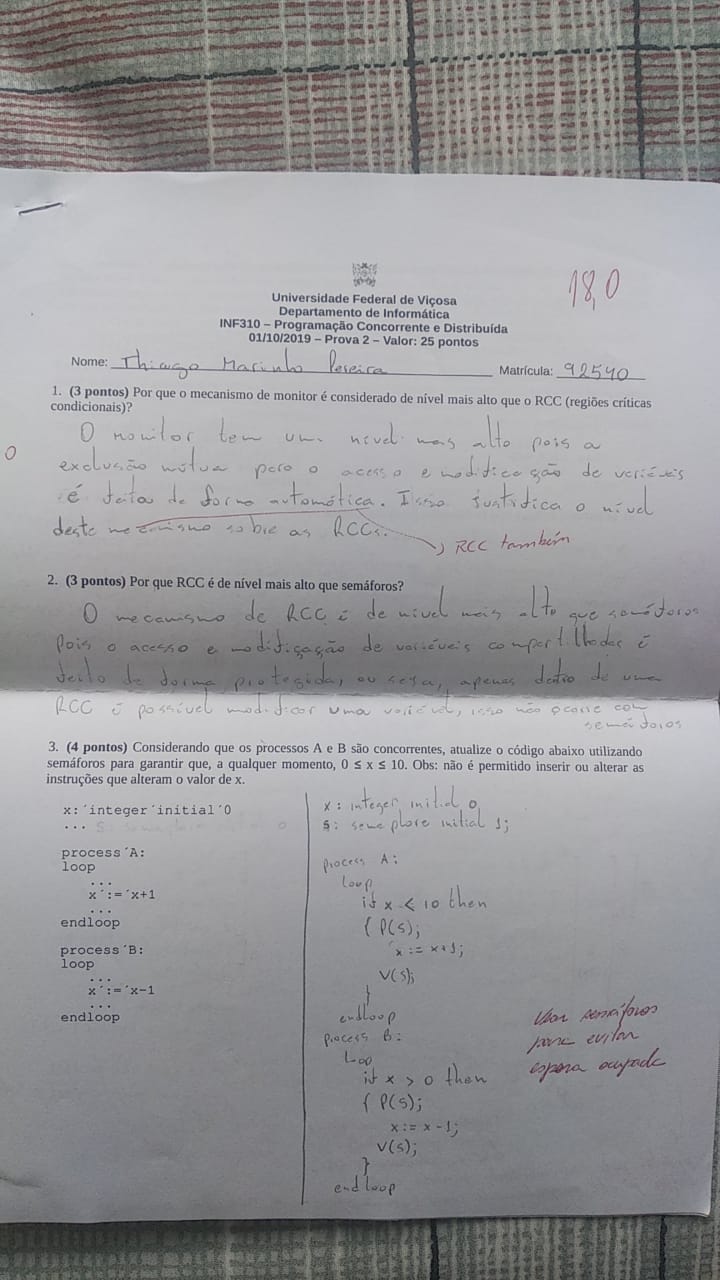 18,0
Universidade Federal de Viçosa
Departamento de Informática
INF310 – Programação Concorrente e Distribuída
01/10/2019 – Prova 2 – Valor: 25 pontos
Nome: Thiago Marinho Pereira Matrícula: 92540
1. (3 pontos) Por que o mecanismo de monitor é considerado de nível mais alto que o RCC (regiões críticas
condicionais)?
O monitor tem um nível mas alto pois a
0
exclusão mútua para o acesso e modificação de variáveis
é feita de forma automática. Isso justifica o nível
deste mecanismo sobre as RCCs.
RCC também
2. (3 pontos) Por que RCC é de nível mais alto que semáforos?
O mecanismo de RCC é de nível mais alto que semáforos
pois o acesso e modificação de variáveis compartilhadas é
feito de forma protegida, ou seja, apenas dentro de uma
RCC é possível modificar uma variável, isso não ocorre com
semáforos
3. (4 pontos) Considerando que os processos A e B são concorrentes, atualize o código abaixo utilizando
semáforos para garantir que, a qualquer momento, 0 ≤ x ≤ 10. Obs: não é permitido inserir ou alterar as
instruções que alteram o valor de x.
x:´integer´initial´0
...
process´A:
loop
...
x´:=´x+1
...
endloop
process´B:
loop
...
x´:=´x-1
...
endloop
x: integer initial 0
s: semaphore initial 1;
process A:
loop
if x < 10 then
{ P(s);
x := x+1;
V(s);
}
endloop
process B:
Loop
if x > 0 then
{ P(s);
x := x-1;
V(s);
}
endloop
Usar semáforos
para evitar
espera ocupada